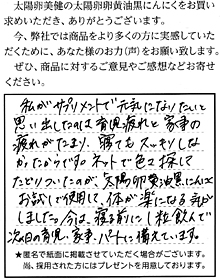 太陽卵美健の太陽卵卵黄油黒にんにくをお買い
求めいただき、ありがとうございます。
今、弊社では商品をより多くの方に実感していた
だくために、あなた様のお力(声)をお願い致します。
ぜひ、商品に対するご意見やご感想などお寄せ
ください。
私がサプリメントで元気になりたいと
思い出したのは育児疲れと家事の
疲れがたまり、寝てもスッキリしな
かったからですのネットで色々探して
たどりついたのが、太陽卵黄油黒にんにく
お試しで使用して、体が楽になる気が
しました。今は、寝る前に1粒飲んで
次の日の育児・家事・パートに備えています。
★匿名で紙面に掲載させていただく場合がございます。
尚、採用された方にはプレゼントを用意しております。